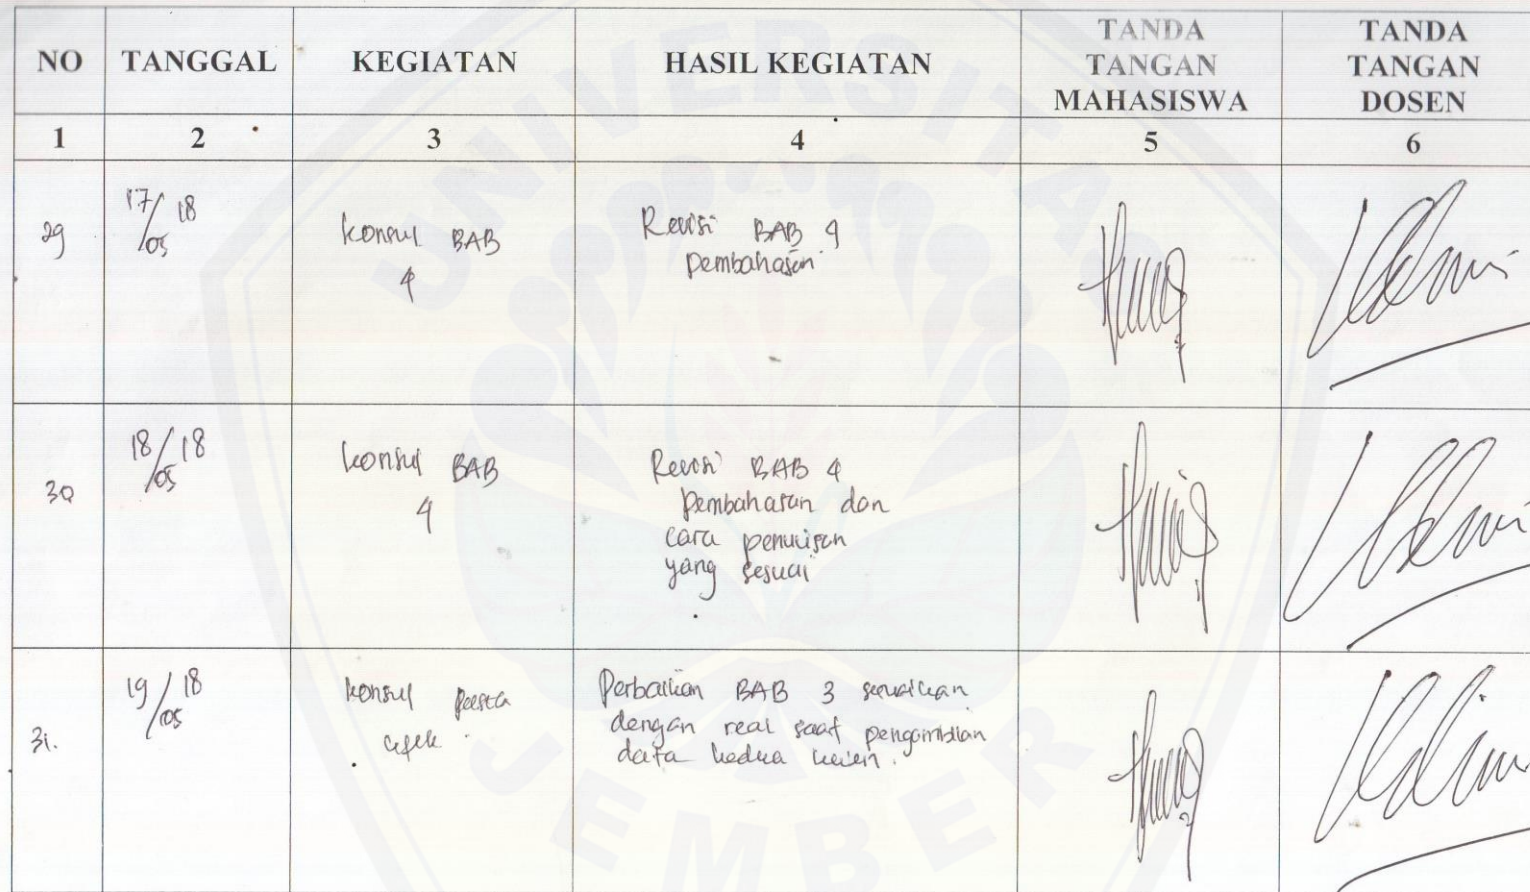 NO TANGGAL KEGIATAN HASIL KEGIATAN TANDA TANGAN MAHASISWA TANDA TANGAN DOSEN
1 2 3 4 5 6
29 17/05 18 konsul BAB 4 Revisi BAB 4
pembahasan
30 18/05 18 konsul BAB 4 Revisi BAB 4
pembahasan dan
cara penulisan
yang sesuai
31. 19/05 18 konsul Perbaikan BAB 3 sesuaikan
dengan real saat pengambilan
data kedua klien.
UNIVERSITAS
JEMBER